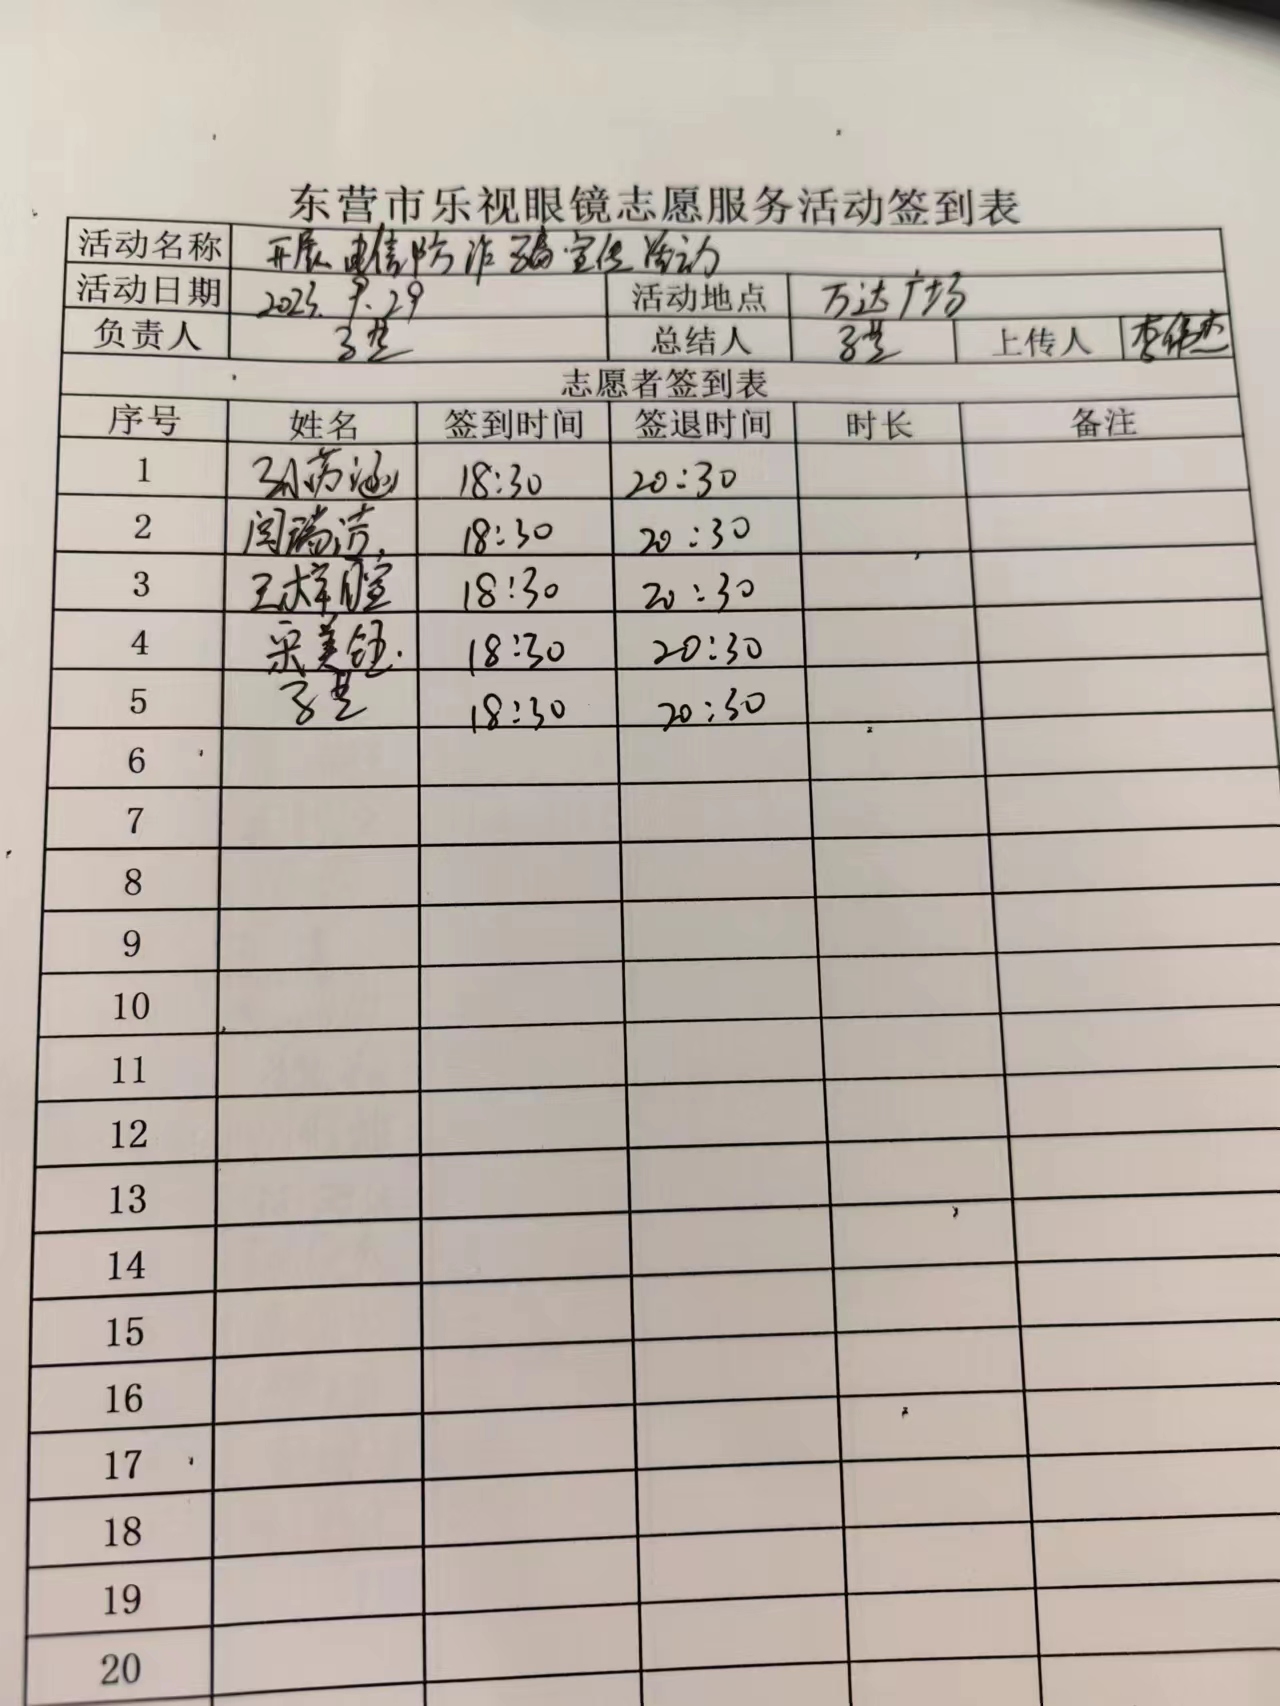 东营市乐视眼镜志愿服务活动签到表
活动名称 开展电信防诈骗宣传活动
活动日期 2023.9.29 活动地点 万达广场
负责人 总结人 上传人 李伟杰
志愿者签到表
序号 姓名 签到时间 签退时间 时长 备注
1 18:30 20:30
2 闫瑞洁 18:30 20:30
3 王梓暄 18:30 20:30
4 宋美钰 18:30 20:30
5 18:30 20:30
6
7
8
9
10
11
12
13
14
15
16
17
18
19
20